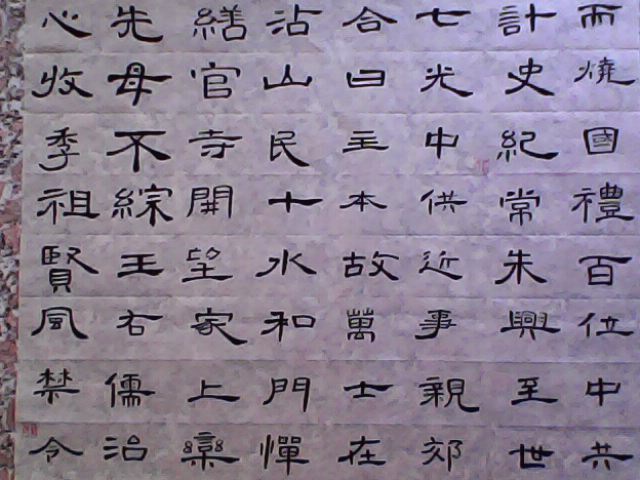 而燒國禮百位中共
計史紀常朱興至世
七光中供近事親郊
合曰主本故萬士在
沾山民十水和門憚
繕官寺開望家上
先母不綜王右儒治
心收季祖賢風禁令